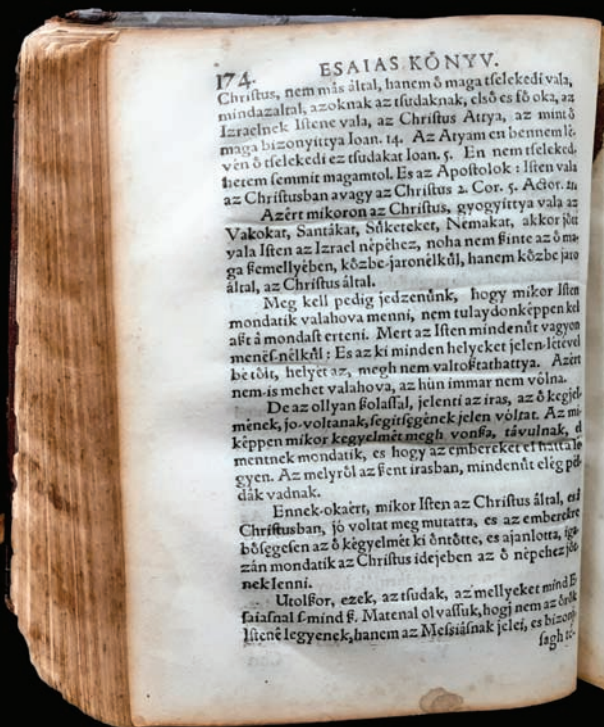 174. ESAIAS KÓNYV.
Chriſtus, nem más által, hanem ő maga tselekedi vala,
mindazaltal, azoknak az tſudaknak, elsó es fó oka, az
Izraelnek Iſtene vala, az Chriſtus Attya, az mint ő
maga bizonyittya Ioan. 14. Az Atyam en bennem lé-
vén ő tſelekedi ez tſudakat Ioan. 5. En nem tſeleked-
hetem ſemmit magamtol. Es az Apoſtolok : Iſten vala
az Chriſtusban avagy az Chriſtus 2. Cor. 5. Actor.
Azért mikoron az Chriſtus, gyogyittya vala az
Vakokat, Santákat, Sűketeket, Némakat, akkor jőtt
vala Iſten az Izrael népéhez, noha nem ſzinte az ő ma-
ga ſzemellyében, kőzbe-jaronélkűl, hanem kőzbe jaro
által, az Chriſtus által.
Meg kell pedig jedzenűnk, hogy mikor Iſten
mondatik valahova menni, nem tulaydonképpen kel
aſzt á mondaſt erteni. Mert az Iſten mindenűt vagyon
menéſ-nélkűl : Es az ki minden helyeket jelen-létével
bé tőlt, helyét az, megh nem valtoſztathattya. Azért
nem-is mehet valahova, az hún immar nem vólna.
De az ollyan ſzolaſſal, jelenti az iras, az ő kegjel-
mének, jo-voltanak, ſegitſegének jelen vóltat. Az mi-
képpen mikor kegyelmét megh vonſza, távulnak, el
mentnek mondatik, es hogy az embereket el hatta le-
gyen. Az melyről az ſzent irasban, mindenűt elég pél-
dák vadnak.
Ennek-okaért, mikor Iſten az Chriſtus által, es á
Chriſtusban, jó voltat meg mutatta, es az emberekre
bőſegeſen az ő kegyelmét ki őntőtte, es ajanlotta, iga-
zán mondatik az Chriſtus idejeben az ő népehez jőt-
nek lenni.
Utolſzor, ezek, az tſudak, az mellyeket mind E-
ſaiaſnal ſ mind ſz. Matenal olvaſſuk, hogj nem az őrők
Iſtené legyenek, hanem az Meſsiásnak jelei, es bizony-
ſagh té-